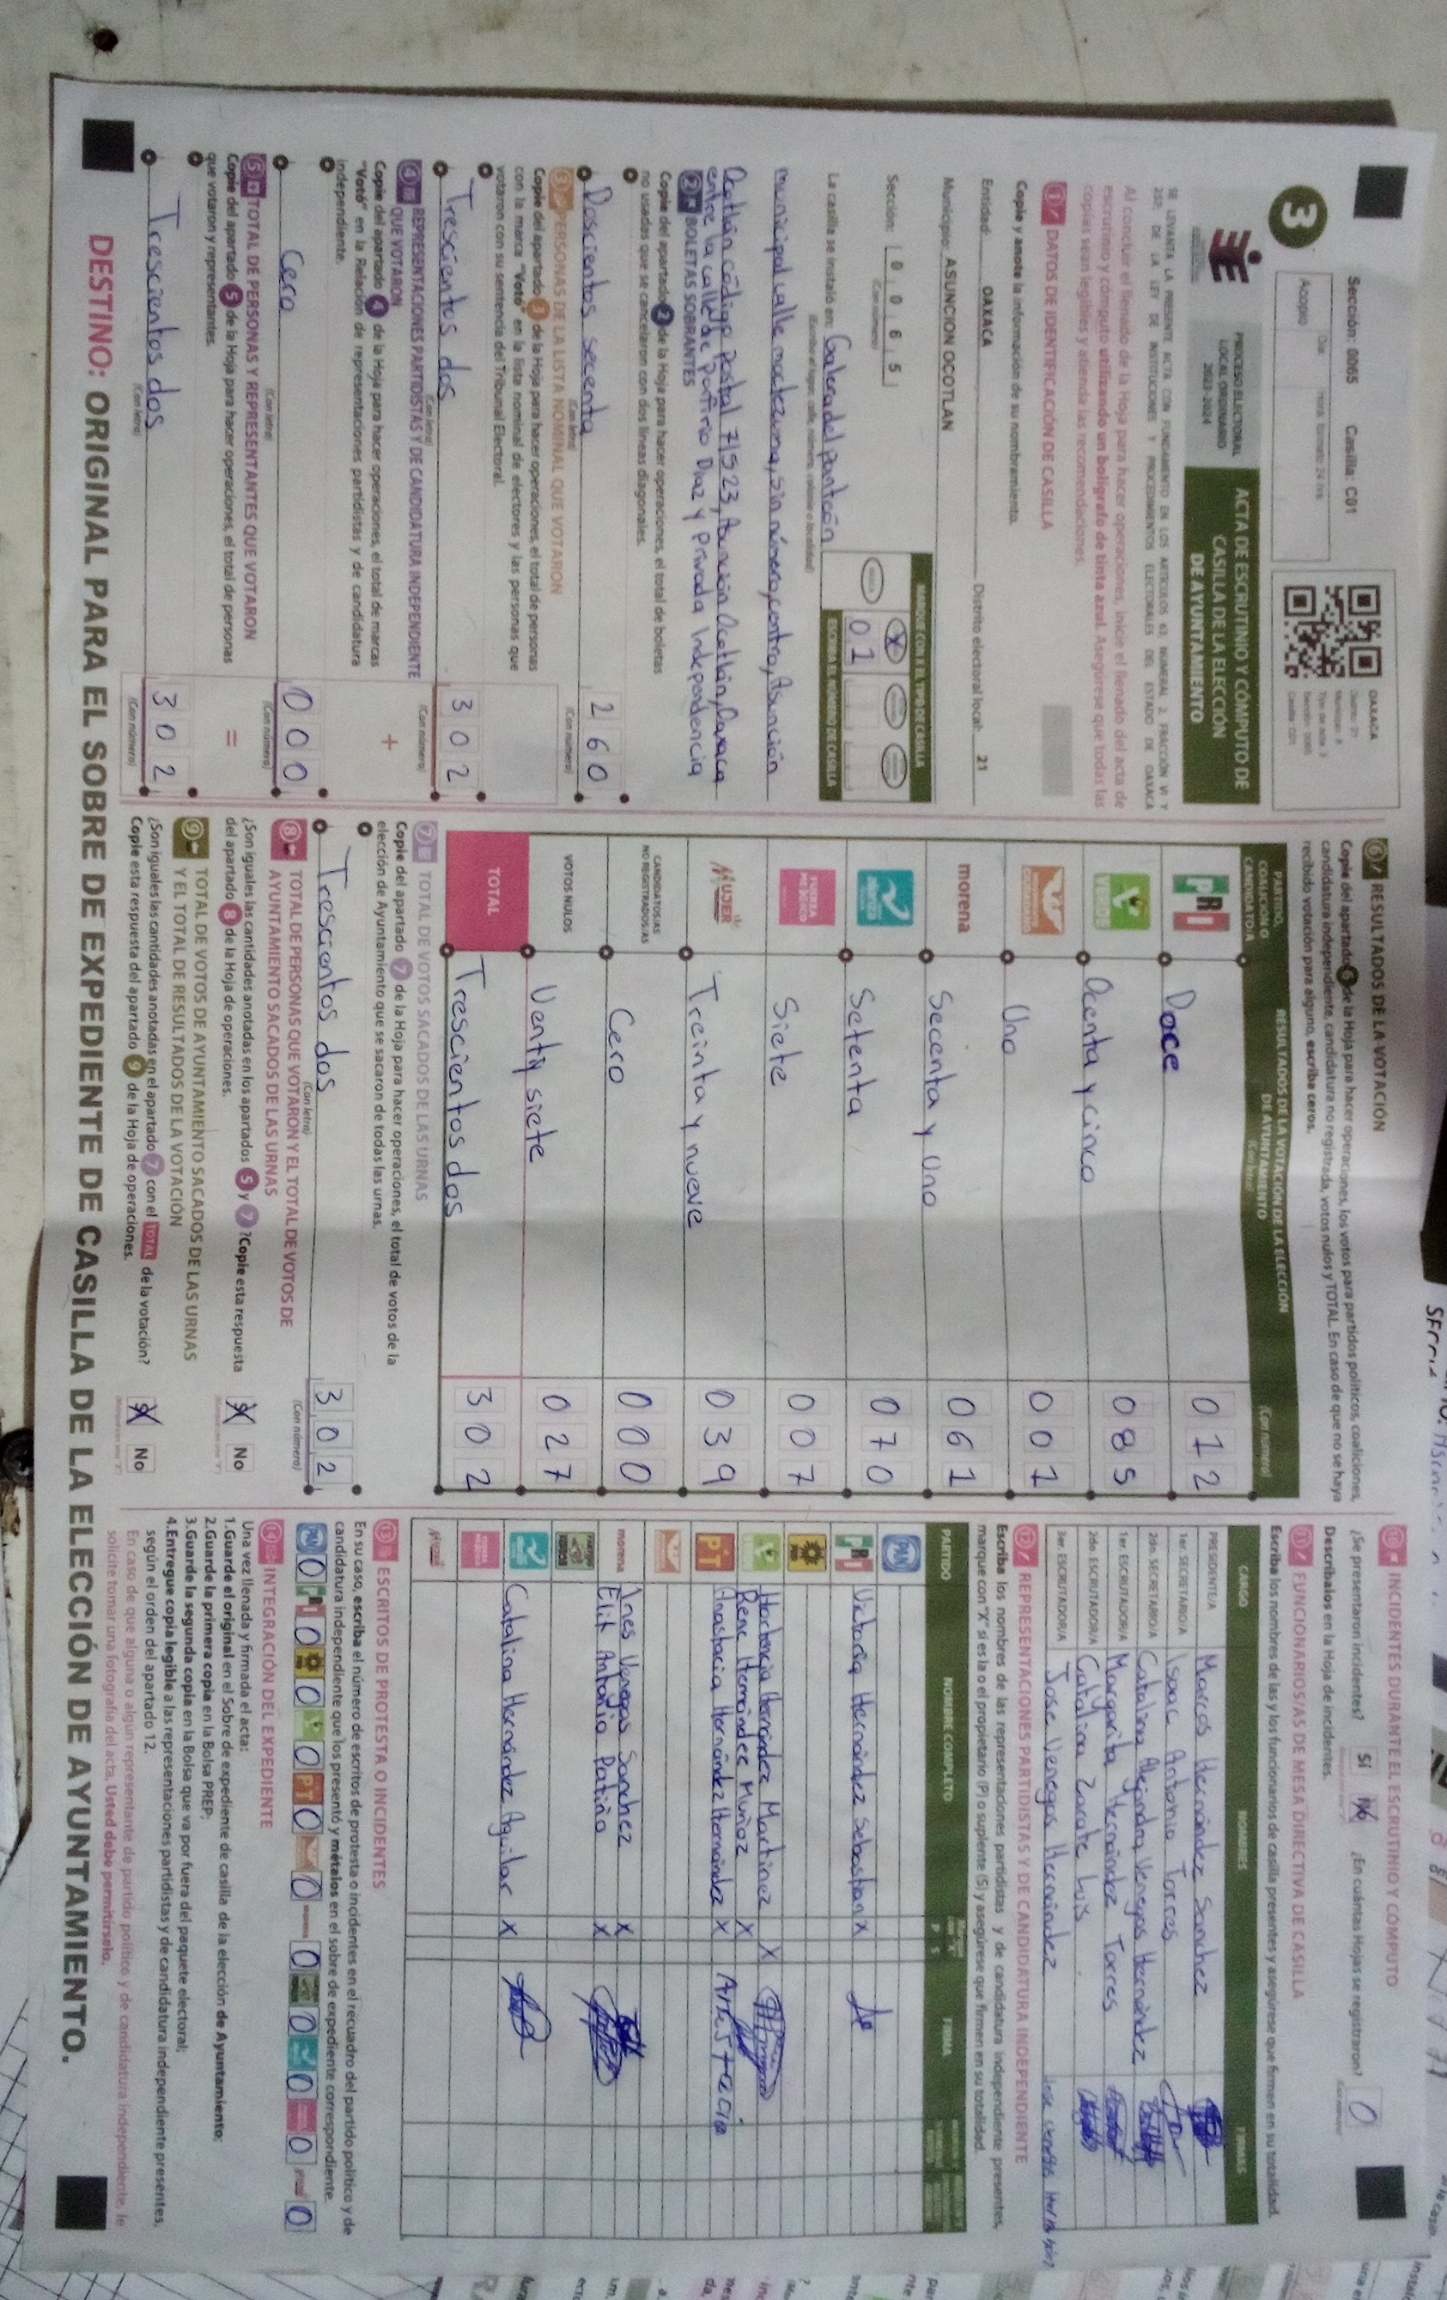 Sección: 0065 Casilla: C01
3
Acopio
Día:
Hora, formato 24 hrs.
OAXACA
PROCESO ELECTORAL
LOCAL ORDINARIO
2023-2024
ACTA DE ESCRUTINIO Y CÓMPUTO DE
CASILLA DE LA ELECCIÓN
DE AYUNTAMIENTO
SE LEVANTA LA PRESENTE ACTA CON FUNDAMENTO EN LOS ARTÍCULOS 63, NUMERAL 2, FRACCIÓN VI Y
230, DE LA LEY DE INSTITUCIONES Y PROCEDIMIENTOS ELECTORALES DEL ESTADO DE OAXACA
Al concluir el llenado de la Hoja para hacer operaciones, inicie el llenado del acta de
escrutinio y cómputo utilizando un bolígrafo de tinta azul. Asegúrese que todas las
copias sean legibles y atienda las recomendaciones.
1 DATOS DE IDENTIFICACIÓN DE CASILLA
Copie y anote la información de su nombramiento.
Entidad: OAXACA Distrito electoral local: 21
Municipio: ASUNCION OCOTLAN
Sección: 0 0 6 5
(Con número)
MARQUE CON X EL TIPO DE CASILLA
X
0 1
ESCRIBA EL NÚMERO DE CASILLA
La casilla se instaló en: Galera del panteón
(Escriba el lugar, calle, número, colonia o localidad)
municipal calle moctezuma, sin número, centro, Asunción
Ocotlán código postal 71523, Asunción Ocotlán, Oaxaca
entre la calle de porfirio Diaz y privada Independencia
2 BOLETAS SOBRANTES
Copie del apartado 2 de la Hoja para hacer operaciones, el total de boletas
no usadas que se cancelaron con dos líneas diagonales.
Doscientos secenta 2 6 0
(Con letra) (Con número)
3 PERSONAS DE LA LISTA NOMINAL QUE VOTARON
Copie del apartado 3 de la Hoja para hacer operaciones, el total de personas
con la marca "Votó" en la lista nominal de electores y las personas que
votaron con su sentencia del Tribunal Electoral.
Trescientos dos 3 0 2
(Con letra) (Con número)
4 REPRESENTACIONES PARTIDISTAS Y DE CANDIDATURA INDEPENDIENTE
QUE VOTARON
Copie del apartado 4 de la Hoja para hacer operaciones, el total de marcas
"Votó" en la Relación de representaciones partidistas y de candidatura
independiente.
+
Cero 0 0 0
(Con letra) (Con número)
5 TOTAL DE PERSONAS Y REPRESENTANTES QUE VOTARON
Copie del apartado 5 de la Hoja para hacer operaciones, el total de personas
que votaron y representantes.
=
Trescientos dos 3 0 2
(Con letra) (Con número)
6 RESULTADOS DE LA VOTACIÓN
Copie del apartado 6 de la Hoja para hacer operaciones, los votos para partidos políticos, coaliciones,
candidatura independiente, candidatura no registrada, votos nulos y TOTAL. En caso de que no se haya
recibido votación para alguno, escriba ceros.
PARTIDO,
COALICIÓN O
CANDIDATO/A
RESULTADOS DE LA VOTACIÓN DE LA ELECCIÓN
DE AYUNTAMIENTO
(Con letra) (Con número)
PRI Doce 0 1 2
VERDE Ocenta y cinco 0 8 5
Uno 0 0 1
morena Secenta y Uno 0 6 1
Setenta 0 7 0
FUERZA MÉXICO Siete 0 0 7
MUJER Treinta y nueve 0 3 9
CANDIDATOS/AS
NO REGISTRADOS/AS
Cero 0 0 0
VOTOS NULOS Venti siete 0 2 7
TOTAL Trescientos dos 3 0 2
7 TOTAL DE VOTOS SACADOS DE LAS URNAS
Copie del apartado 7 de la Hoja para hacer operaciones, el total de votos de la
elección de Ayuntamiento que se sacaron de todas las urnas.
Trescientos dos 3 0 2
(Con letra) (Con número)
8 TOTAL DE PERSONAS QUE VOTARON Y EL TOTAL DE VOTOS DE
AYUNTAMIENTO SACADOS DE LAS URNAS
¿Son iguales las cantidades anotadas en los apartados 5 y 7? Copie esta respuesta
del apartado 8 de la Hoja de operaciones.
Sí X No
9 TOTAL DE VOTOS DE AYUNTAMIENTO SACADOS DE LAS URNAS
Y EL TOTAL DE RESULTADOS DE LA VOTACIÓN
¿Son iguales las cantidades anotadas en el apartado 7 con el TOTAL de la votación?
Copie esta respuesta del apartado 9 de la Hoja de operaciones.
Sí X No
10 INCIDENTES DURANTE EL ESCRUTINIO Y CÓMPUTO
¿Se presentaron incidentes? Sí No X ¿En cuántas Hojas se registraron? 0
Descríbalos en la Hoja de incidentes.
11 FUNCIONARIOS/AS DE MESA DIRECTIVA DE CASILLA
Escriba los nombres de las y los funcionarios de casilla presentes y asegúrese que firmen en su totalidad.
CARGO NOMBRES FIRMAS
PRESIDENTE/A Marcos Hernández Sanchez
1er. SECRETARIO/A Isaac Antonio Torres
2do. SECRETARIO/A Catalina Alejandra Venegas Hernández
1er. ESCRUTADOR/A Margarita Hernández Torres
2do. ESCRUTADOR/A Catalina Zarate Luis
3er. ESCRUTADOR/A Jose Venegas Hernández
12 REPRESENTACIONES PARTIDISTAS Y DE CANDIDATURA INDEPENDIENTE
Escriba los nombres de las representaciones partidistas y de candidatura independiente presentes,
marque con "X" si es la o el propietario (P) o suplente (S) y asegúrese que firmen en su totalidad.
PARTIDO NOMBRE COMPLETO P S FIRMA
PAN
PRI Victoria Hernández Sebastian X
Hortencia Hernández Martinez X
Rene Hernández Muñoz X
PT Anastacia Hernández Hernández X
morena Ines Venegas Sanchez X
Elit Antonio Patiño X
Catalina Hernández Aguilar X
13 ESCRITOS DE PROTESTA O INCIDENTES
En su caso, escriba el número de escritos de protesta o incidentes en el recuadro del partido político y de
candidatura independiente que los presentó y métalos en el sobre de expediente correspondiente.
PAN 0 PRI 0 0 0 PT 0 0 0 0 0 0 0
14 INTEGRACIÓN DEL EXPEDIENTE
Una vez llenada y firmada el acta:
1.Guarde el original en el Sobre de expediente de casilla de la elección de Ayuntamiento;
2.Guarde la primera copia en la Bolsa PREP;
3.Guarde la segunda copia en la Bolsa que va por fuera del paquete electoral;
4.Entregue copia legible a las representaciones partidistas y de candidatura independiente presentes,
según el orden del apartado 12.
En caso de que alguna o algún representante de partido político y de candidatura independiente, le
solicite tomar una fotografía del acta, Usted debe permitírselo.
DESTINO: ORIGINAL PARA EL SOBRE DE EXPEDIENTE DE CASILLA DE LA ELECCIÓN DE AYUNTAMIENTO.